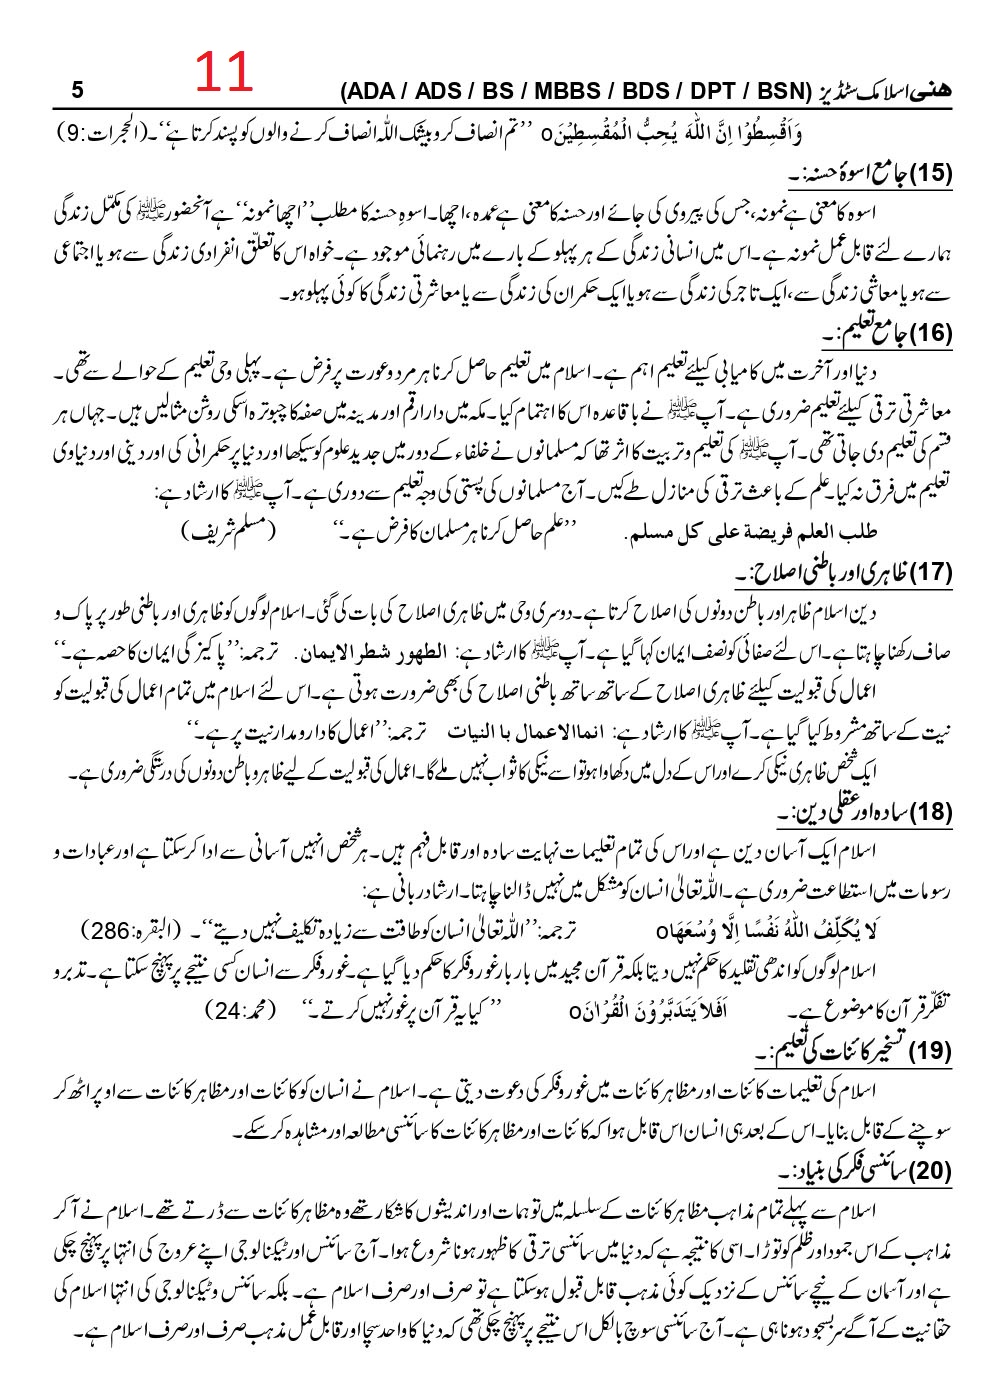 11
ھنی اسلامک سٹڈیز (ADA / ADS / BS / MBBS / BDS / DPT / BSN) 5
وَاَقْسِطُوْا اِنَّ اللّٰهَ يُحِبُّ الْمُقْسِطِيْنَo ’’تم انصاف کرو بیشک اللہ انصاف کرنے والوں کو پسند کرتا ہے‘‘۔ (الحجرات:9)
(15) جامع اسوۂ حسنہ:۔
اسوہ کا معنی ہے نمونہ، جس کی پیروی کی جائے اور حسنہ کا معنی ہے عمدہ ، اچھا۔ اسوہِ حسنہ کا مطلب ’’اچھا نمونہ‘‘ ہے آنحضور ﷺ کی مکمّل زندگی
ہمارے لئے قابل عمل نمونہ ہے۔ اس میں انسانی زندگی کے ہر پہلو کے بارے میں رہنمائی موجود ہے۔ خواہ اس کا تعلّق انفرادی زندگی سے ہو یا اجتماعی
سے ہو یا معاشی زندگی سے، ایک تاجر کی زندگی سے ہو یا ایک حکمران کی زندگی سے یا معاشرتی زندگی کا کوئی پہلو ہو۔
(16) جامع تعلیم:۔
دنیا اور آخرت میں کامیابی کیلئے تعلیم اہم ہے۔ اسلام میں تعلیم حاصل کرنا ہر مرد و عورت پر فرض ہے۔ پہلی وحی تعلیم کے حوالے سے تھی۔
معاشرتی ترقی کیلئے تعلیم ضروری ہے۔ آپ ﷺ نے باقاعدہ اس کا اہتمام کیا۔ مکہ میں دارارقم اور مدینہ میں صفہ کا چبوترہ اسکی روشن مثالیں ہیں۔ جہاں ہر
قسم کی تعلیم دی جاتی تھی۔ آپ ﷺ کی تعلیم و تربیت کا اثر تھا کہ مسلمانوں نے خلفاء کے دور میں جدید علوم کو سیکھا اور دنیا پر حکمرانی کی اور دینی اور دنیاوی
تعلیم میں فرق نہ کیا۔ علم کے باعث ترقی کی منازل طے کیں۔ آج مسلمانوں کی پستی کی وجہ تعلیم سے دوری ہے۔ آپ ﷺ کا ارشاد ہے:
طلب العلم فريضة على كل مسلم. ’’علم حاصل کرنا ہر مسلمان کا فرض ہے۔‘‘ (مسلم شریف)
(17) ظاہری اور باطنی اصلاح:۔
دین اسلام ظاہر اور باطن دونوں کی اصلاح کرتا ہے۔ دوسری وحی میں ظاہری اصلاح کی بات کی گئی۔ اسلام لوگوں کو ظاہری اور باطنی طور پر پاک و
صاف رکھنا چاہتا ہے۔ اس لئے صفائی کو نصف ایمان کہا گیا ہے۔ آپ ﷺ کا ارشاد ہے: الطهور شطر الايمان. ترجمہ: ’’پاکیزگی ایمان کا حصہ ہے۔‘‘
اعمال کی قبولیت کیلئے ظاہری اصلاح کے ساتھ ساتھ باطنی اصلاح کی بھی ضرورت ہوتی ہے۔ اس لئے اسلام میں تمام اعمال کی قبولیت کو
نیت کے ساتھ مشروط کیا گیا ہے۔ آپ ﷺ کا ارشاد ہے: انما الاعمال با النيات ترجمہ: ’’اعمال کا دارومدار نیت پر ہے۔‘‘
ایک شخص ظاہری نیکی کرے اور اس کے دل میں دکھاوا ہو تو اسے نیکی کا ثواب نہیں ملے گا۔ اعمال کی قبولیت کے لیے ظاہر و باطن دونوں کی درستگی ضروری ہے۔
(18) سادہ اور عقلی دین:۔
اسلام ایک آسان دین ہے اور اس کی تمام تعلیمات نہایت سادہ اور قابل فہم ہیں۔ ہر شخص انہیں آسانی سے ادا کر سکتا ہے اور عبادات و
رسومات میں استطاعت ضروری ہے۔ اللہ تعالیٰ انسان کو مشکل میں نہیں ڈالنا چاہتا۔ ارشاد ربانی ہے:
لَا يُكَلِّفُ اللّٰهُ نَفْسًا اِلَّا وُسْعَهَاo ترجمہ: ’’اللہ تعالیٰ انسان کو طاقت سے زیادہ تکلیف نہیں دیتے‘‘۔ (البقرہ:286)
اسلام لوگوں کو اندھی تقلید کا حکم نہیں دیتا بلکہ قرآن مجید میں بار بار غور و فکر کا حکم دیا گیا ہے۔ غور و فکر سے انسان کسی نتیجے پر پہنچ سکتا ہے۔ تدبر و
تفکّر قرآن کا موضوع ہے۔ اَفَلاَ يَتَدَبَّرُوْنَ الْقُرْاٰنَo ’’کیا یہ قرآن پر غور نہیں کرتے۔‘‘ (محمد:24)
(19) تسخیر کائنات کی تعلیم:۔
اسلام کی تعلیمات کائنات اور مظاہر کائنات میں غور و فکر کی دعوت دیتی ہے۔ اسلام نے انسان کو کائنات اور مظاہر کائنات سے اوپر اٹھ کر
سوچنے کے قابل بنایا۔ اس کے بعد ہی انسان اس قابل ہوا کہ کائنات اور مظاہر کائنات کا سائنسی مطالعہ اور مشاہدہ کر سکے۔
(20) سائنسی فکر کی بنیاد:۔
اسلام سے پہلے تمام مذاہب مظاہر کائنات کے سلسلہ میں توہمات اور اندیشوں کا شکار تھے وہ مظاہر کائنات سے ڈرتے تھے۔ اسلام نے آ کر
مذاہب کے اس جمود اور ظلم کو توڑا۔ اسی کا نتیجہ ہے کہ دنیا میں سائنسی ترقی کا ظہور ہونا شروع ہوا۔ آج سائنس اور ٹیکنالوجی اپنے عروج کی انتہا پر پہنچ چکی
ہے اور آسمان کے نیچے سائنس کے نزدیک کوئی مذہب قابل قبول ہو سکتا ہے تو صرف اور صرف اسلام ہے۔ بلکہ سائنس و ٹیکنالوجی کی انتہا اسلام کی
حقانیت کے آگے سربسجود ہونا ہی ہے۔ آج سائنسی سوچ بالکل اس نتیجے پر پہنچ چکی تھی کہ دنیا کا واحد سچا اور قابل عمل مذہب صرف اور صرف اسلام ہے۔